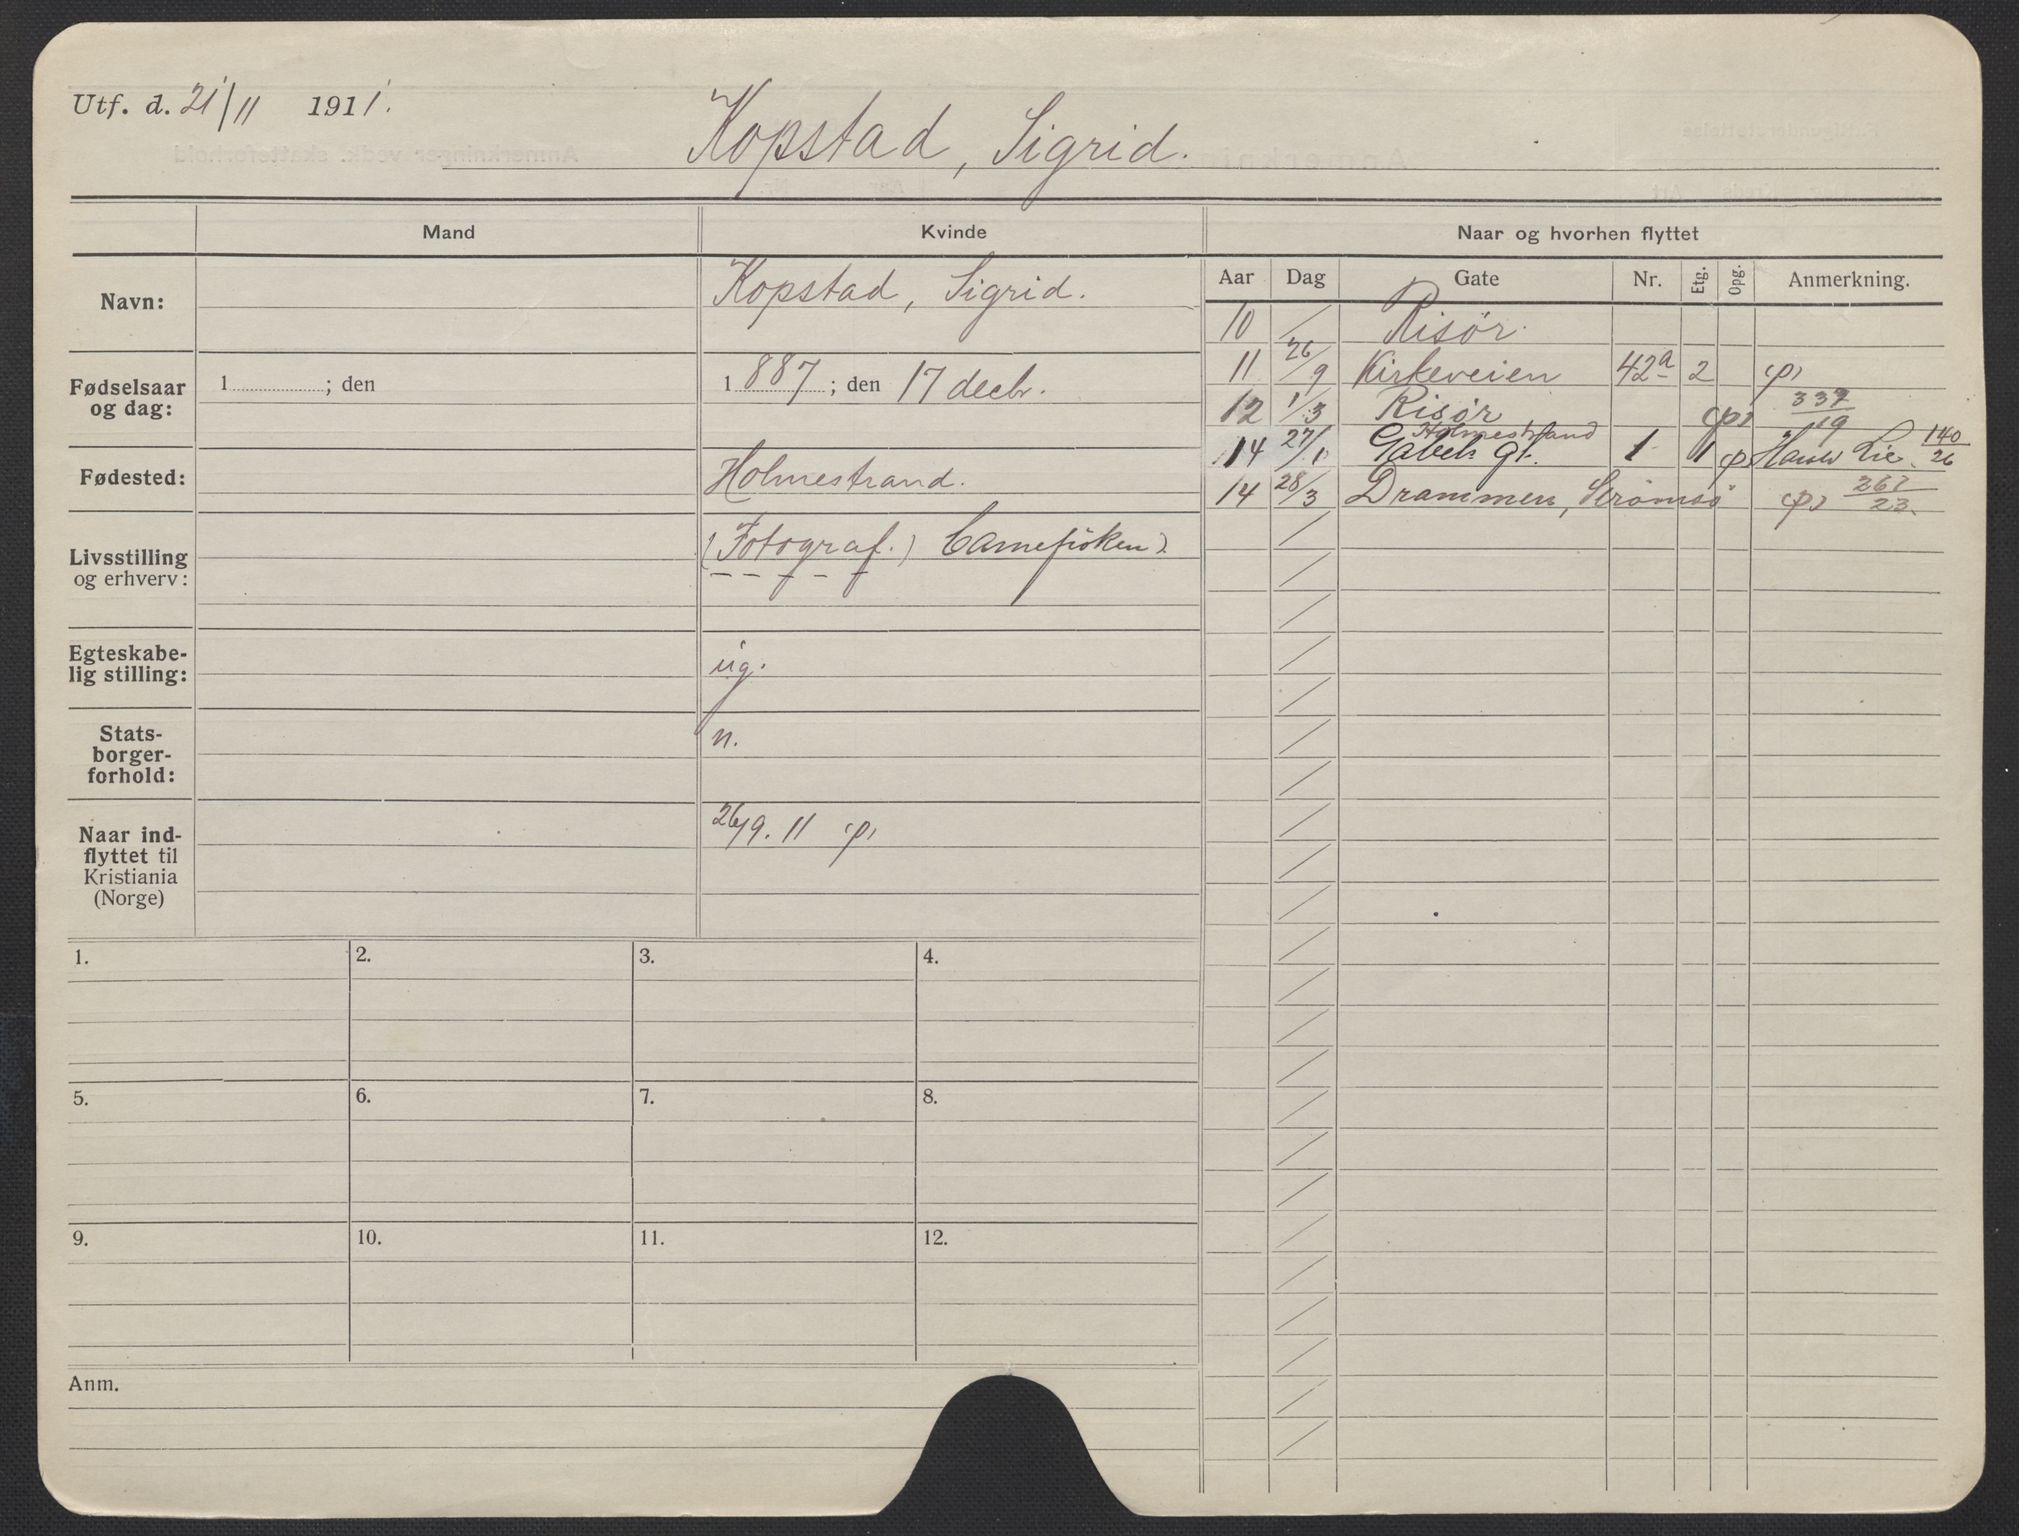 Utf. d. 21/11 1911.
Kopstad, Sigrid.
Mand Kvinde Naar og hvorhen flyttet
Aar Dag Gate Nr. Etg. Opg. Anmerkning.
Navn: Kopstad, Sigrid.
10 Risør.
11 26/9 Kirkeveien 42a 2 (p)
12 1/3 Risør (p) 337/19
Holmestrand
14 27/1 Gabels gt. 1 1 (p) Lie. 140/26
14 28/3 Drammen, Strømsø (p) 267/23.
Fødselsaar og dag: 1 ; den 1887 ; den 17 decbr.
Fødested: Holmestrand.
Livsstilling og erhverv: (Fotograf.)
Egteskabe-
lig stilling: ug.
Stats-
borger-
forhold: n.
Naar ind-
flyttet til
Kristiania
(Norge) 26/9. 11 (p)
1. 2. 3. 4.
5. 6. 7. 8.
9. 10. 11. 12.
Anm.